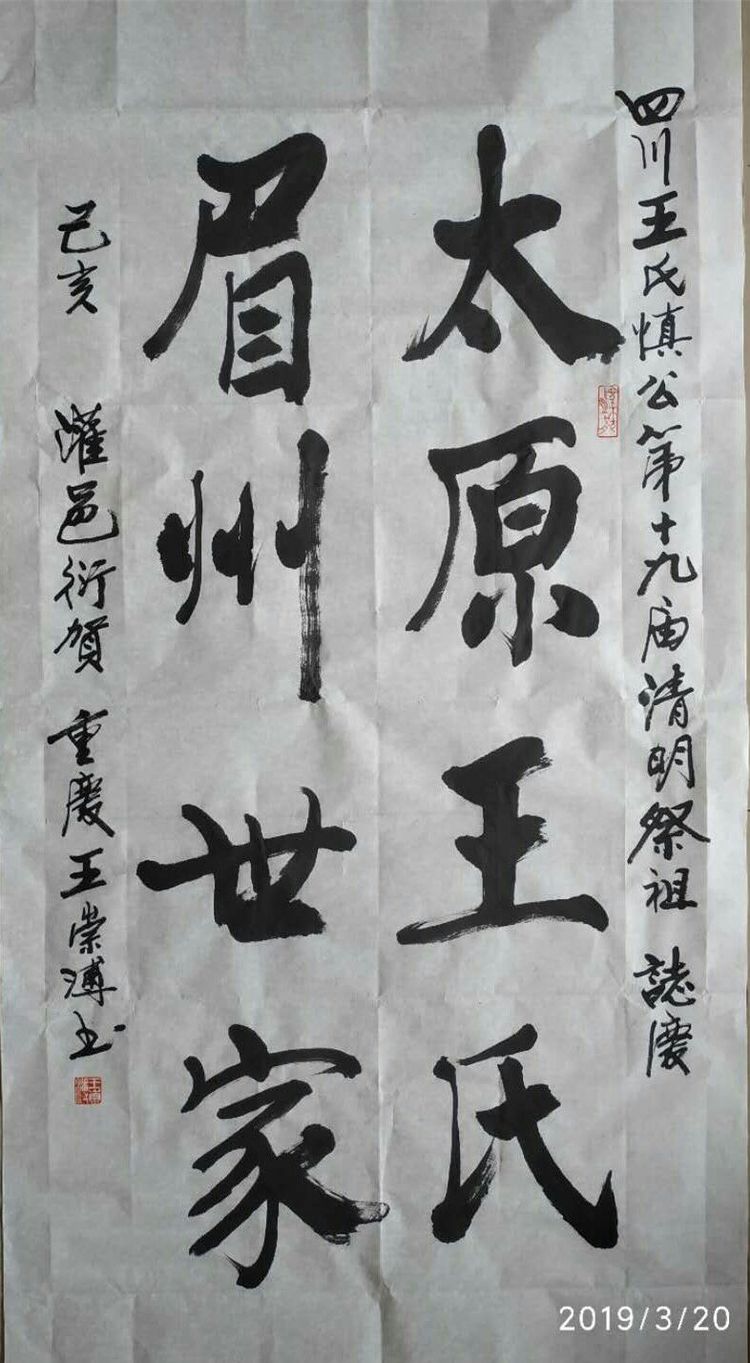 四川王氏慎公第十九届清明祭祖 誌慶
太原王氏
眉州世家
己亥 灌邑衍賀 重慶王崇溥书
2019/3/20